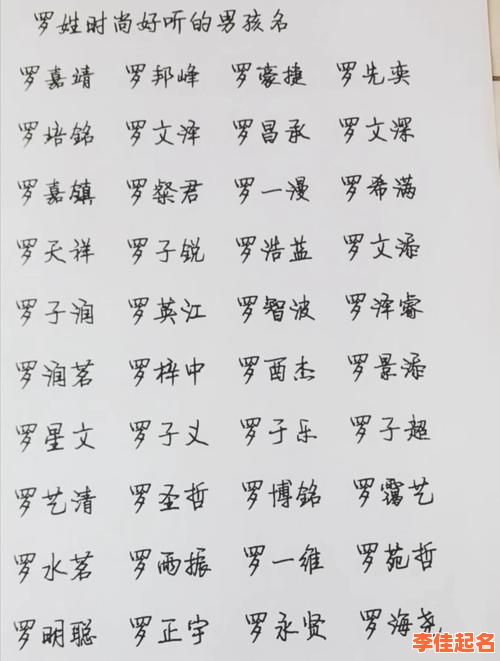 罗姓时尚好听的男孩名
罗嘉靖 罗邦峰 罗豪捷 罗先奕
罗培铭 罗文泽 罗昌承 罗文深
罗嘉镇 罗粲君 罗一漫 罗希满
罗天祥 罗子锐 罗浩蓝 罗文添
罗子润 罗英江 罗智波 罗泽睿
罗润茗 罗梓中 罗酉杰 罗景添
罗星文 罗子义 罗于乐 罗子超
罗艺清 罗圣哲 罗博铭 罗霭艺
罗水茗 罗雨振 罗一维 罗苑哲
罗明聪 罗正宇 罗永贤 罗海尧
李佳起名